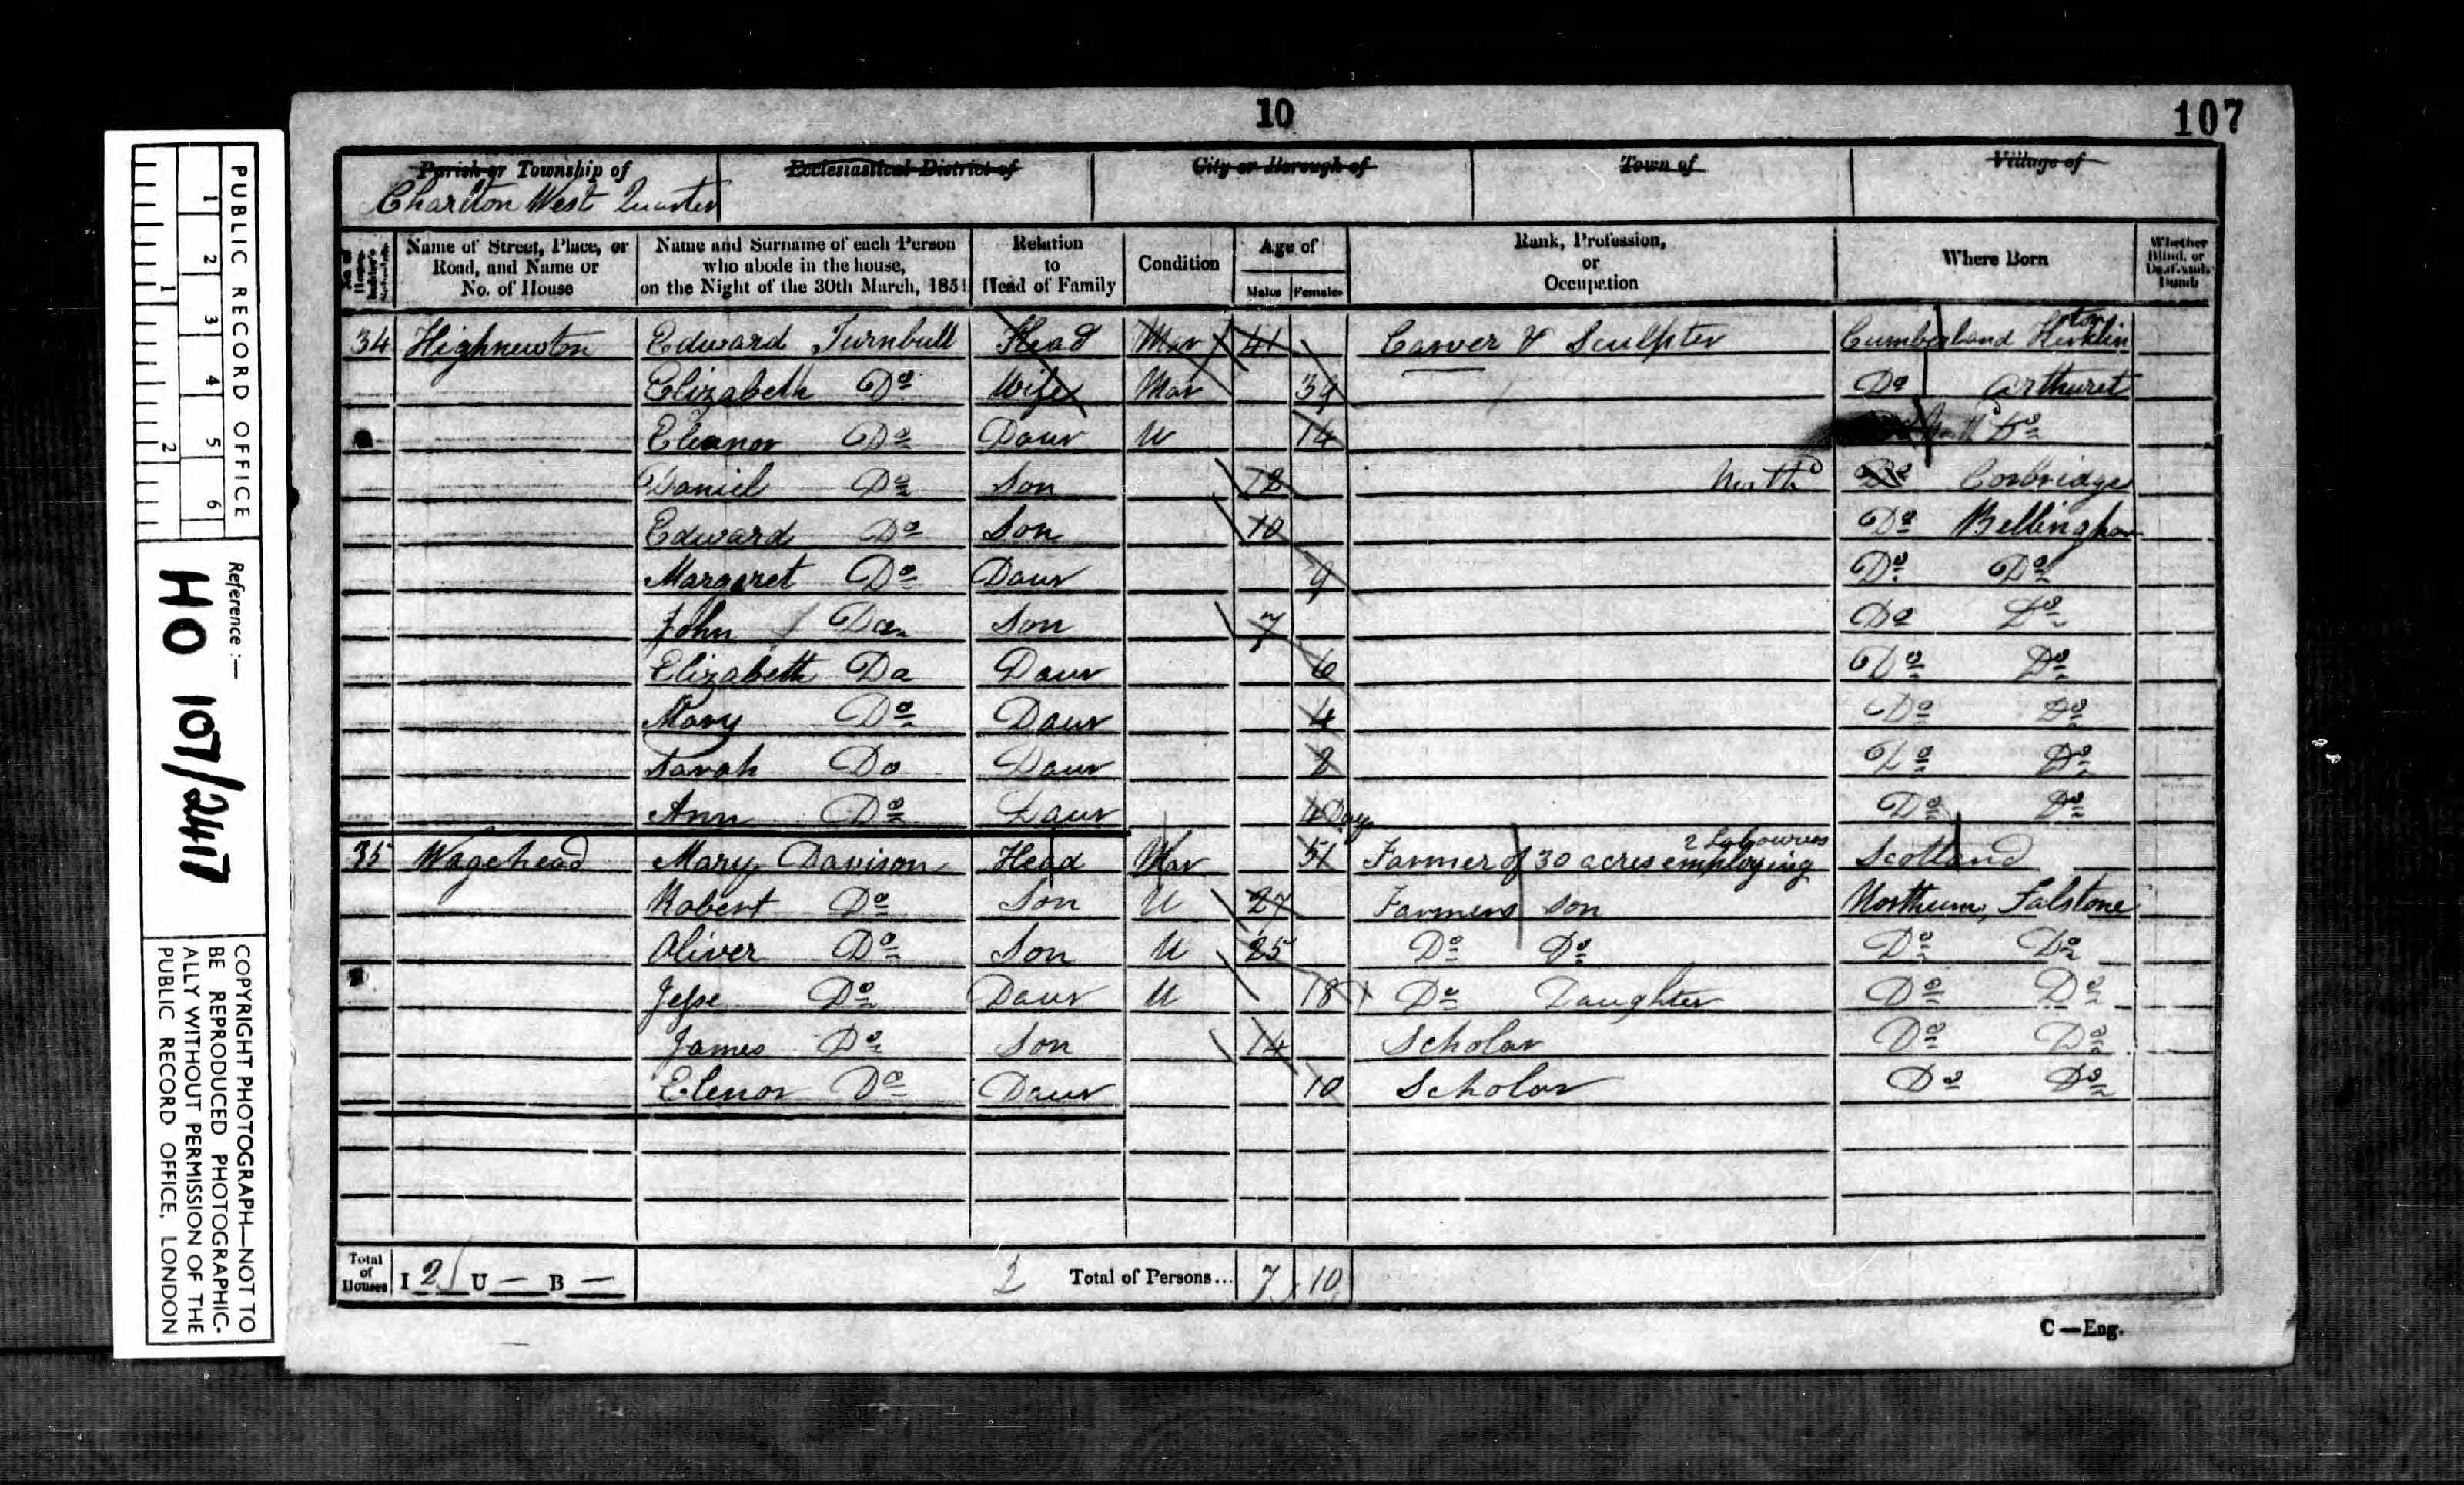 10
107
Parish or Township of
Charlton West Quarter
Ecclesiastical District of
City or Borough of
Town of
Village of
No. of House-holder's Schedule
Name of Street, Place, or Road, and Name or No. of House
Name and Surname of each Person who abode in the house, on the Night of the 30th March, 1851
Relation to Head of Family
Condition
Age of
Males Females
Rank, Profession, or Occupation
Where Born
Whether Blind, or Deaf-and-Dumb
34 Highnewton Edward Turnbull Head Mar 41 Carver & Sculpter Cumberland
Elizabeth Do Wife Mar 39 Do Arthuret
Eleanor Do Daur U 14 Do
Daniel Do Son 12 North'd Do Corbridge
Edward Do Son 10 Do Bellingham
Margaret Do Daur 9 Do Do
John Do Son 7 Do Do
Elizabeth Do Daur 6 Do Do
Mary Do Daur 4 Do Do
Sarah Do Daur 2 Do Do
Ann Do Daur Day Do Do
35 Wagehead Mary Davison Head Mar 51 Farmer of 30 acres employing 2 Labourers Scotland
Robert Do Son U 27 Farmers son Northum, Falstone
Oliver Do Son U 25 Do Do Do Do
Jesse Do Daur U 18 Do Daughter Do Do
James Do Son 14 Scholar Do Do
Elenor Do Daur 10 Scholar Do Do
Total of Houses I 2 U — B — 2 Total of Persons... 7 10
C—Eng.
PUBLIC RECORD OFFICE
1 2 3 4 5 6
1 2
Reference:—
HO 107/2417
COPYRIGHT PHOTOGRAPH—NOT TO
BE REPRODUCED PHOTOGRAPHIC-
ALLY WITHOUT PERMISSION OF THE
PUBLIC RECORD OFFICE, LONDON